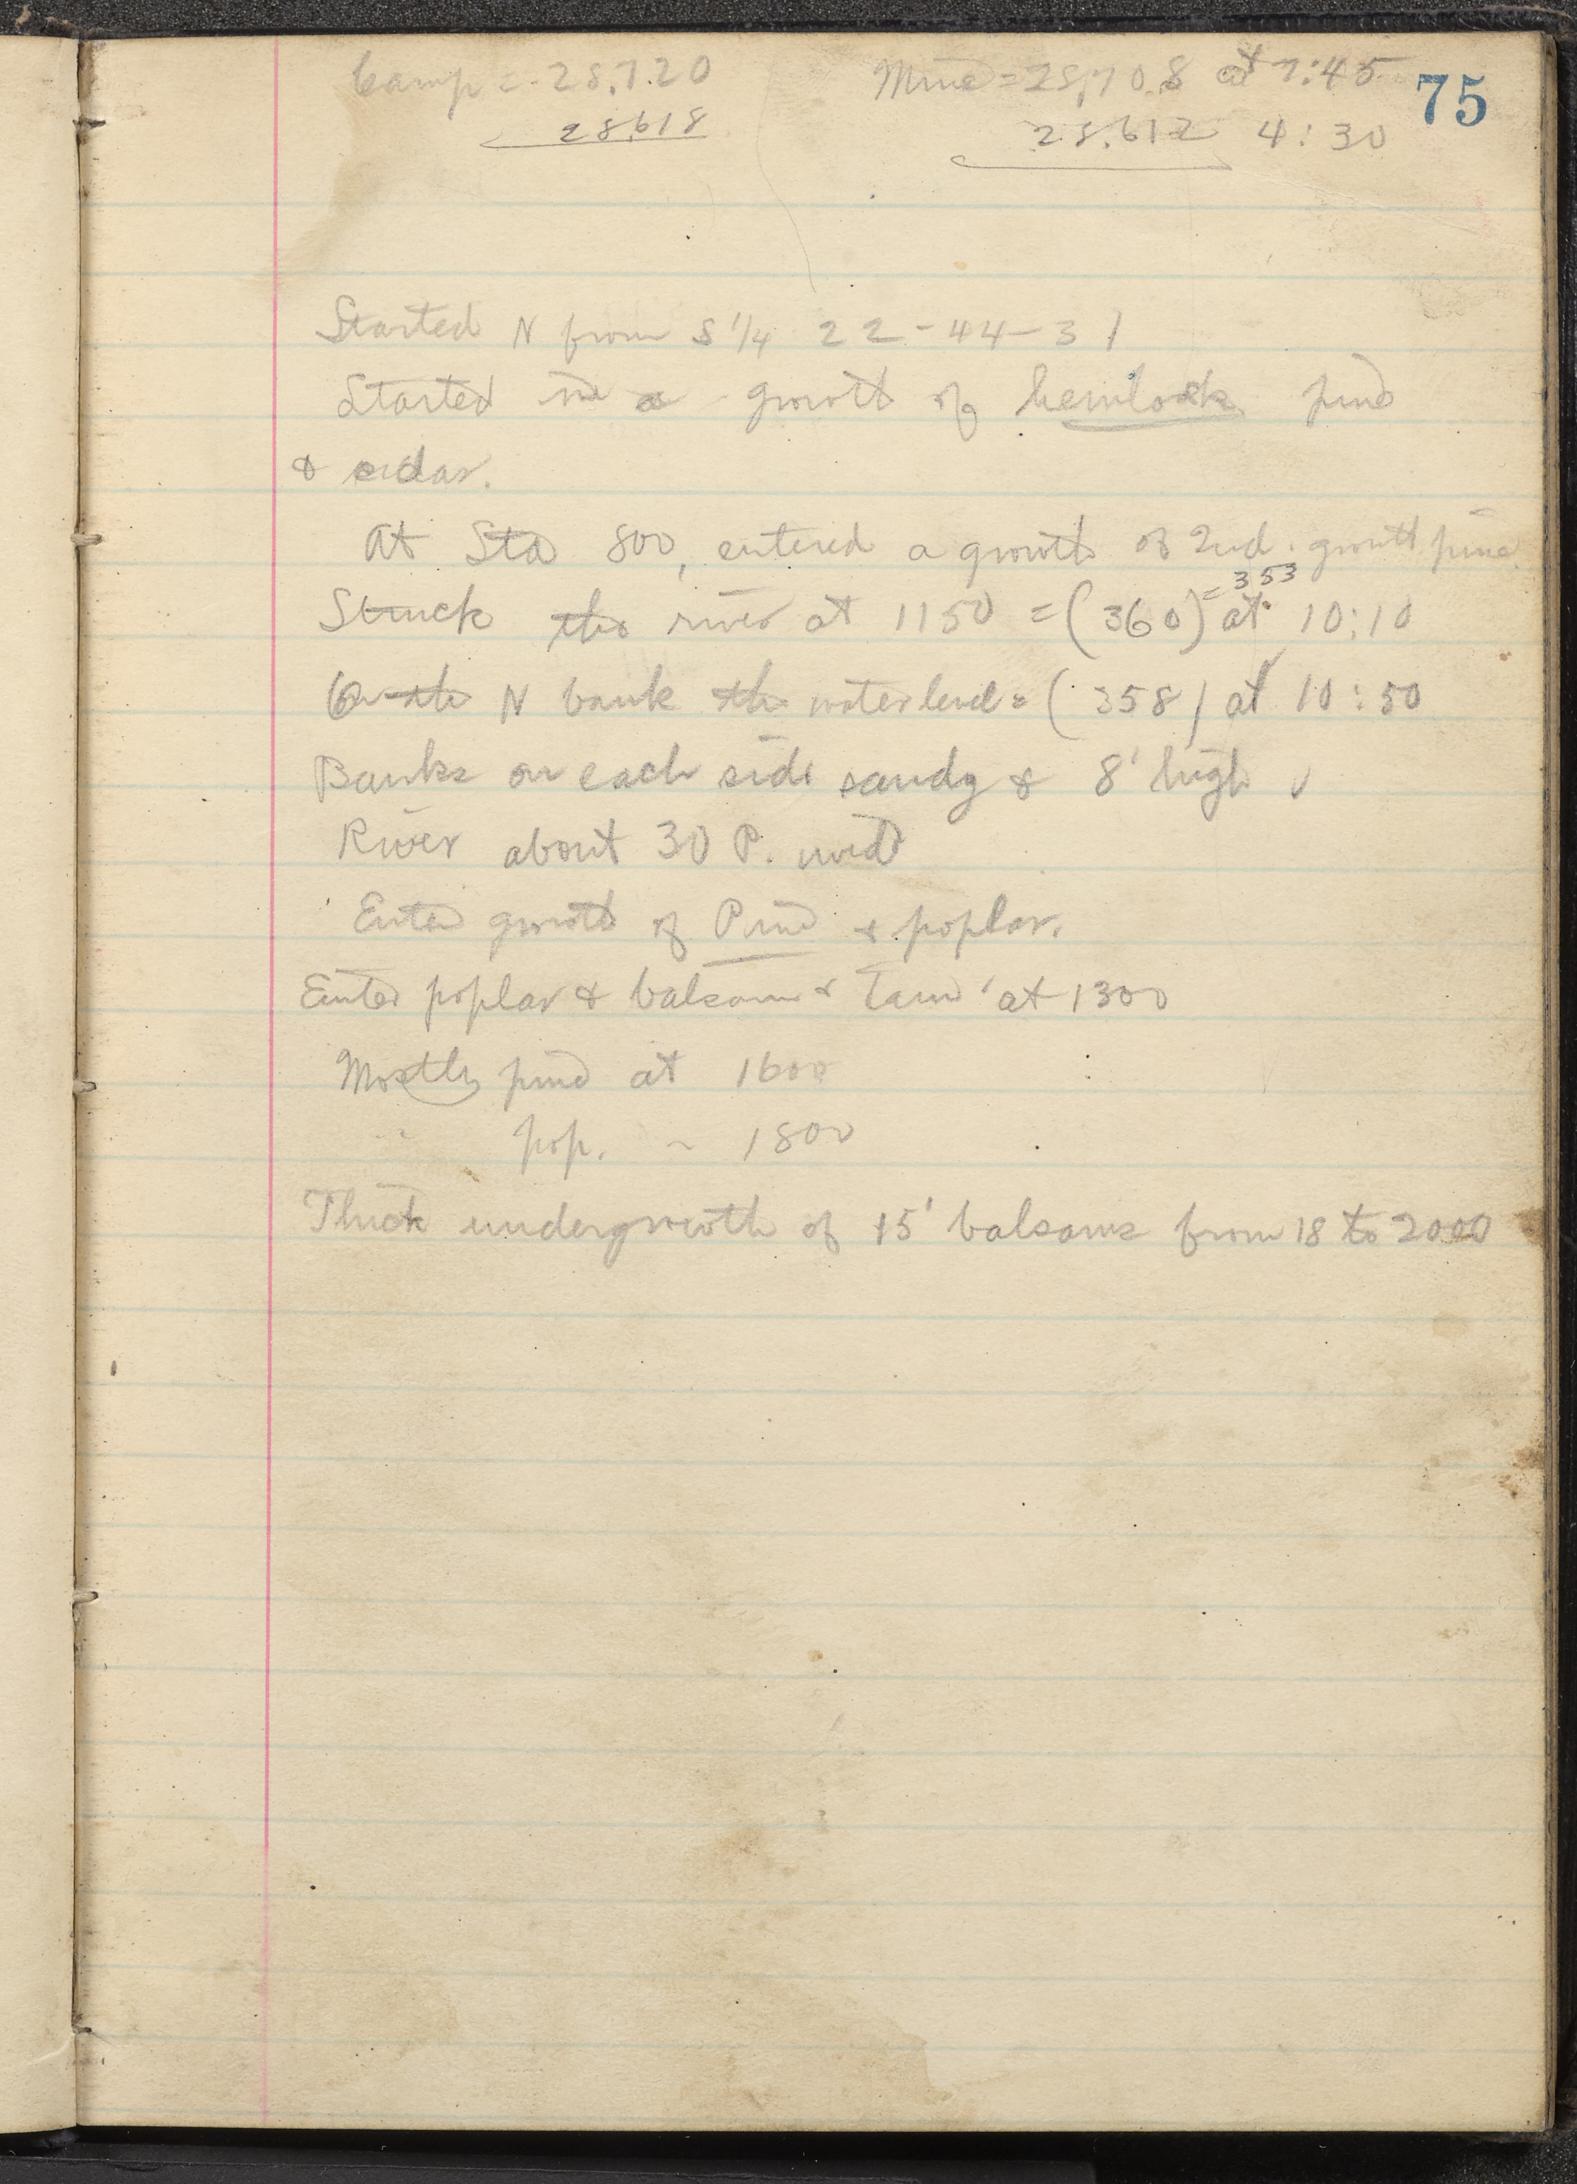 Camp = 28,720 Mine = 28,708 at 7:45 75
28,618 28,612 4:30
Started N from S 1/4 22-44-31
Started in a growth of hemlock pine
& cedar.
At Sta 800, entered a growth of 2nd growth pine
= 353
Struck the river at 1150 = (360) at 10:10
On the N bank the water level = (358) at 10:50
Banks on each side sandy & 8' high ✓
River about 30 P. wide
Enter growth of Pine & poplar.
Enter poplar & balsam & Tam' at 1300
Mostly pine at 1600
" pop. ~ 1800
Thick undergrowth of 15' balsams from 18 to 2000